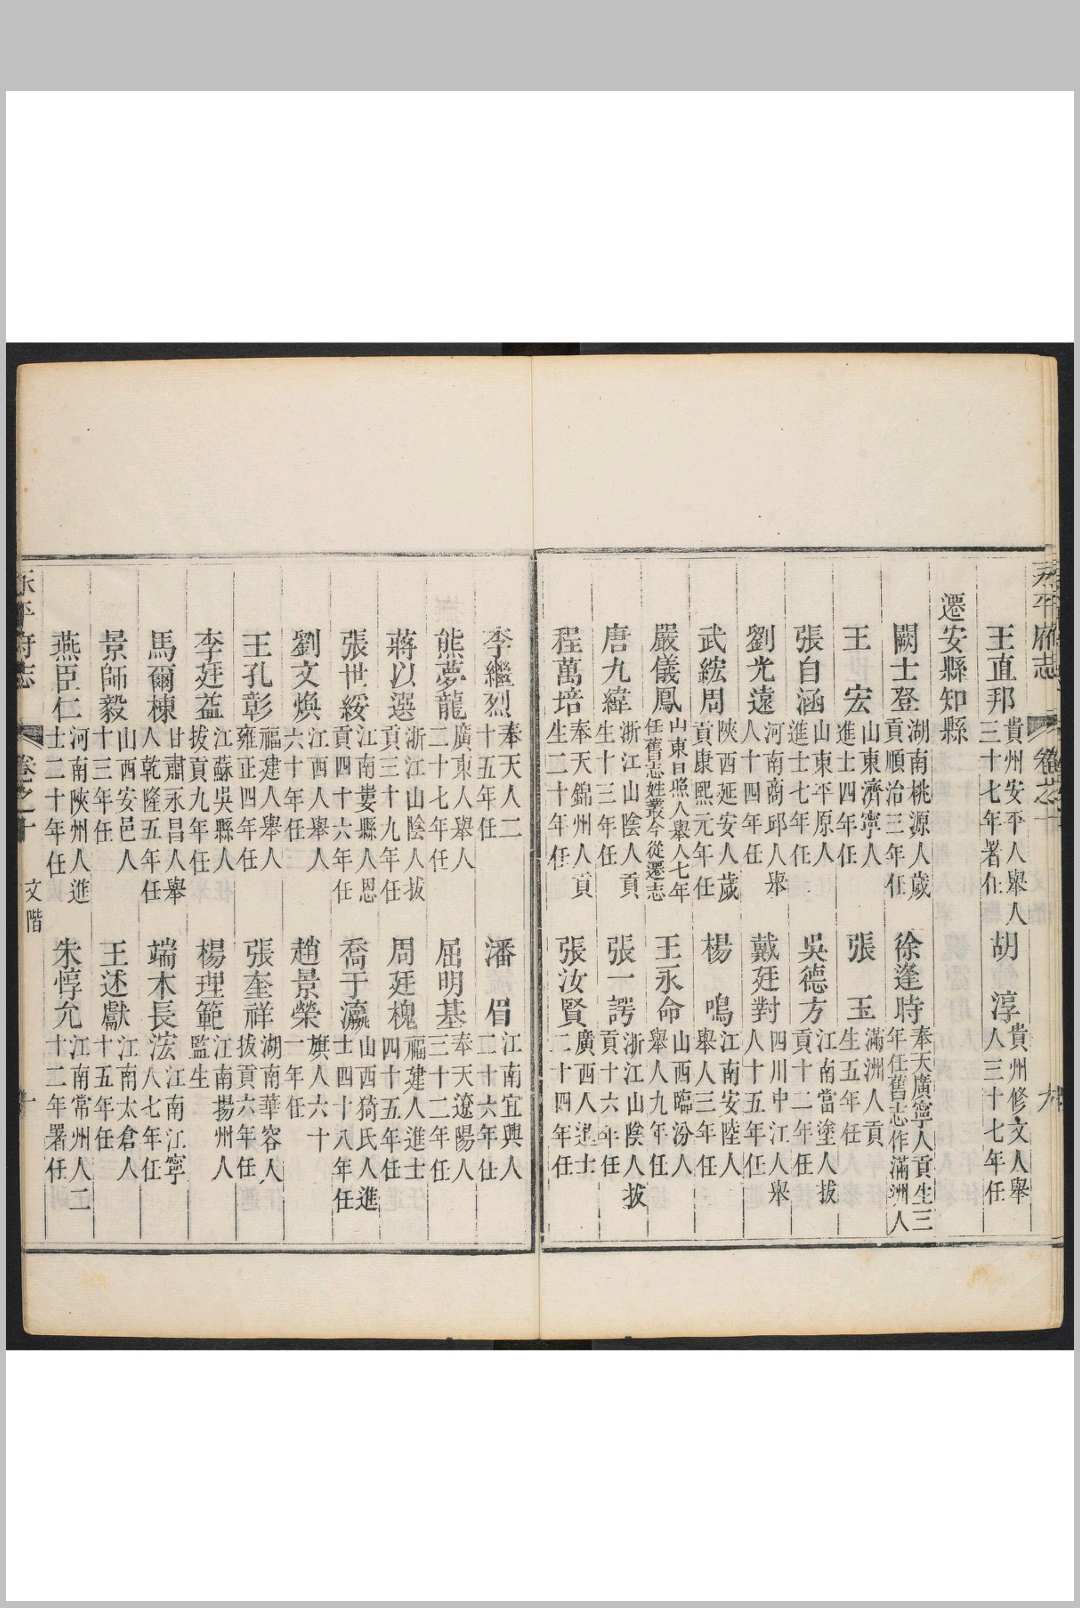 永平府志
卷之十
九
王直邦 貴州安平人舉人三十七年署任 胡 淳 貴州修文人舉人三十七年任
遷安縣知縣
闞士登 湖南桃源人歲貢順治三年任 徐逢時 奉天廣寧人貢生三年任舊志作滿洲人
王 宏 山東濟寧人進士四年任 張 玉 滿洲人貢生五年任
張自涵 山東平原人進士七年任 吳德方 江南當塗人拔貢十二年任
劉光遠 河南商邱人舉人十四年任 戴廷對 四川中江人舉人十五年任
武紘周 陝西延安人歲貢康熙元年任 楊 鳴 江南安陸人舉人三年任
嚴儀鳳 山東日照人舉人七年任舊志姓叢今從遷志 王永命 山西臨汾人舉人九年任
唐九緯 浙江山陰人貢生十三年任 張一諤 浙江山陰人拔貢十六年任
程萬培 奉天錦州人貢生二十年任 張汝賢 廣西人進士二十四年任
李繼烈 奉天人二十五年任 潘 眉 江南宜興人二十六年任
熊夢龍 廣東人舉人二十七年任 屈明基 奉天遼陽人三十二年任
蔣以選 浙江山陰人拔貢三十九年任 周廷槐 福建人進士四十五年任
張世綏 江南婁縣人恩貢四十六年任 喬于瀛 山西猗氏人進士四十八年任
劉文煥 江西人舉人六十年任 趙景榮 旗人六十一年任
王孔彰 福建人舉人雍正四年任 張奎祥 湖南華容人拔貢六年任
李廷葢 江蘇吳縣人拔貢九年任 楊理範 江南揚州人監生
馬爾棟 甘肅永昌人舉人乾隆五年任 端木長浤 江南江寧人七年任
景師毅 山西安邑人十三年任 王述獻 江南太倉人十五年任
燕臣仁 河南陝州人進士二十年任 朱惇允 江南常州人二十二年署任
永平府志
卷之十
文階
十